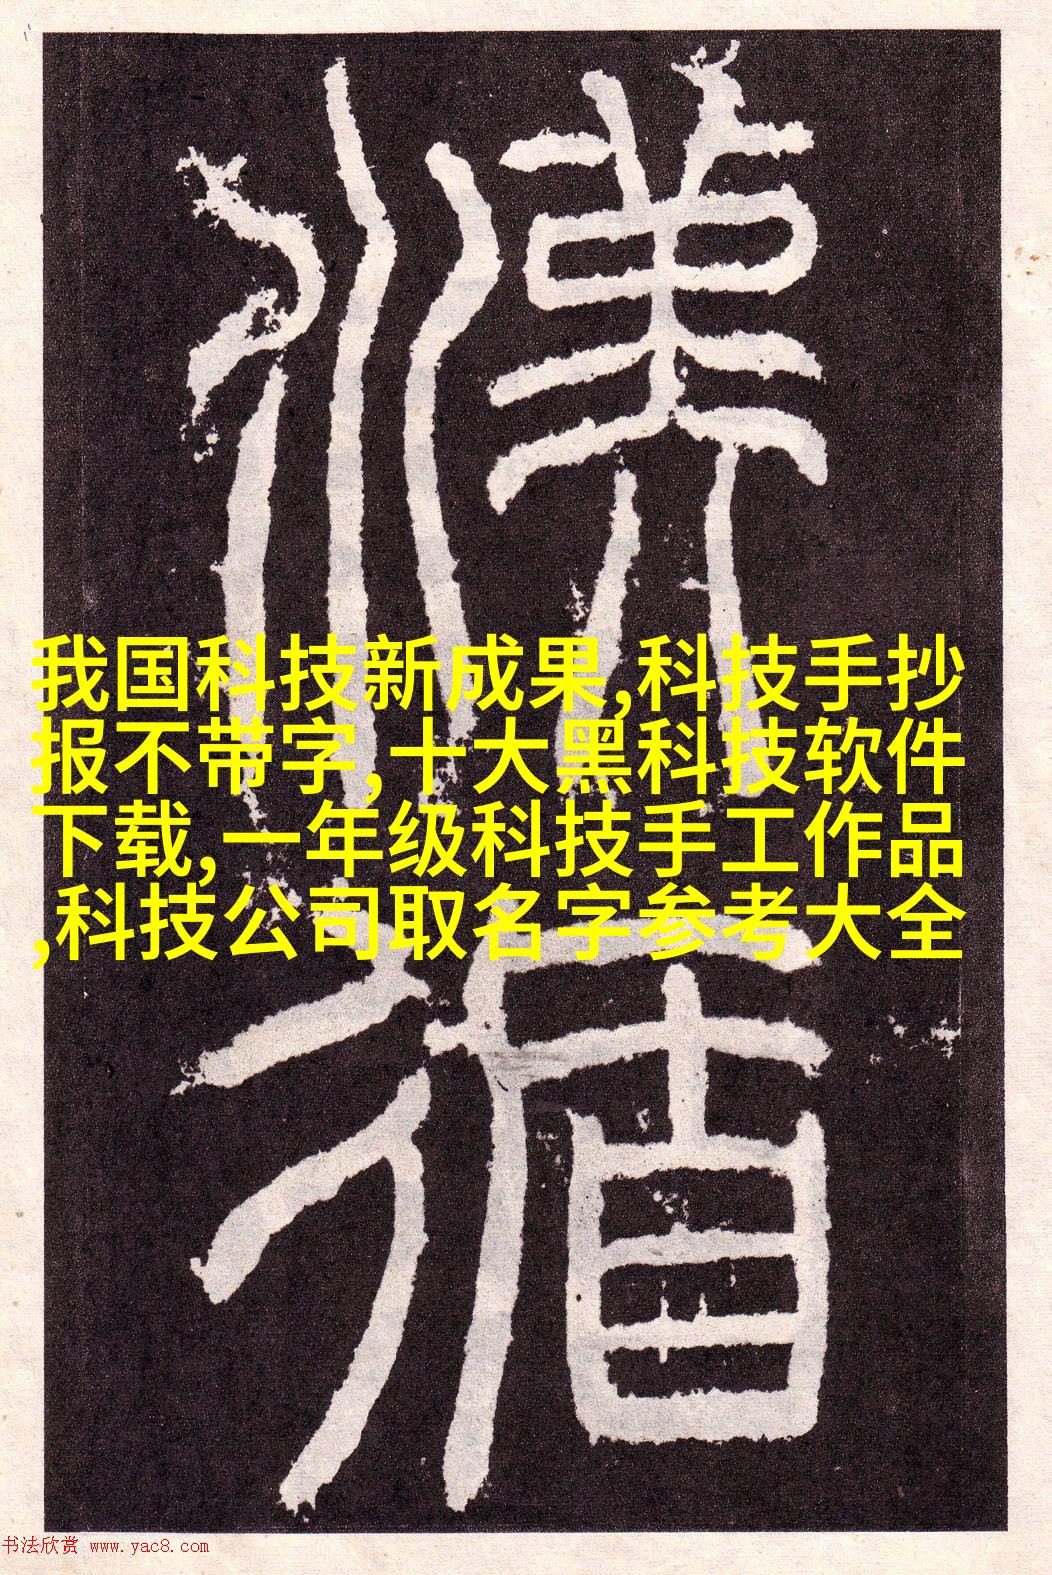 我国科技新成果,科技手抄
报不带字,十大黑科技软件
下载,一年级科技手工作品
,科技公司取名字参考大全
书法欣赏 www.yac8.com